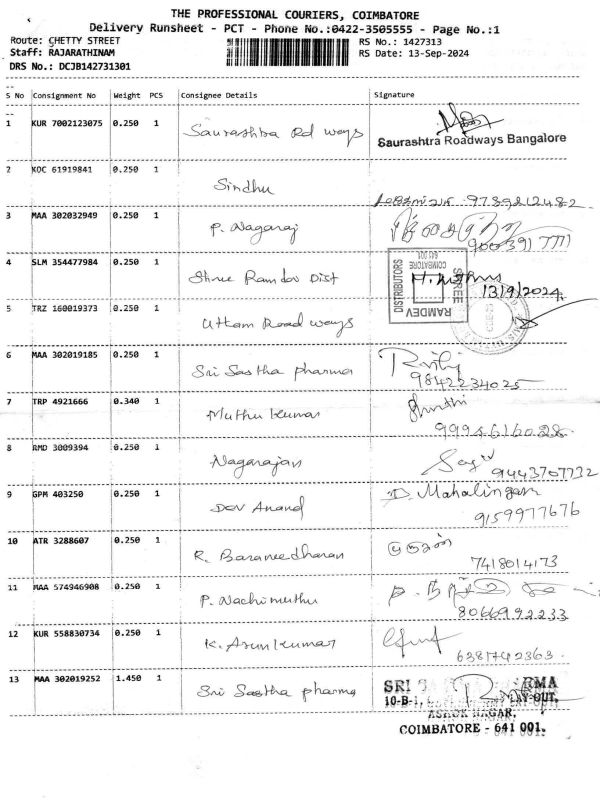 THE PROFESSIONAL COURIERS, COIMBATORE
Delivery Runsheet - PCT - Phone No.:0422-3505555 - Page No.:1
Route: CHETTY STREET RS No.: 1427313
Staff: RAJARATHINAM RS Date: 13-Sep-2024
DRS No.: DCJB142731301
S No Consignment No Weight PCS Consignee Details Signature
1 KUR 7002123075 0.250 1 Saurashtra Rd ways
Saurashtra Roadways Bangalore
2 KOC 61919841 0.250 1 Sindhu
9739212482
3 MAA 302032949 0.250 1 P. Nagaraj
4 SLM 354477984 0.250 1 Shree Ramdev Dist
SHREE RAMDEV DISTRIBUTORS COIMBATORE 641 001
13/9/2024
5 TRZ 160019373 0.250 1 Uttam Road ways
6 MAA 302019185 0.250 1 Sri Sastha pharma
9842234025
7 TRP 4921666 0.340 1 Muthu kumar
Shruthi
8 RMD 3009394 0.250 1 Nagarajan
9443707732
9 GPM 403250 0.250 1 Dev Anand
D. Mahalingam
9159977676
10 ATR 3288607 0.250 1 R. Baraneedharan
7418014173
11 MAA 574946908 0.250 1 P. Nachimuthu
8066992233
12 KUR 558830734 0.250 1 K. Arunkumar
6381742363
13 MAA 302019252 1.450 1 Sri Sastha pharma
SRI
10-B-1, LAY-OUT,
ASHOK NAGAR,
COIMBATORE - 641 001.